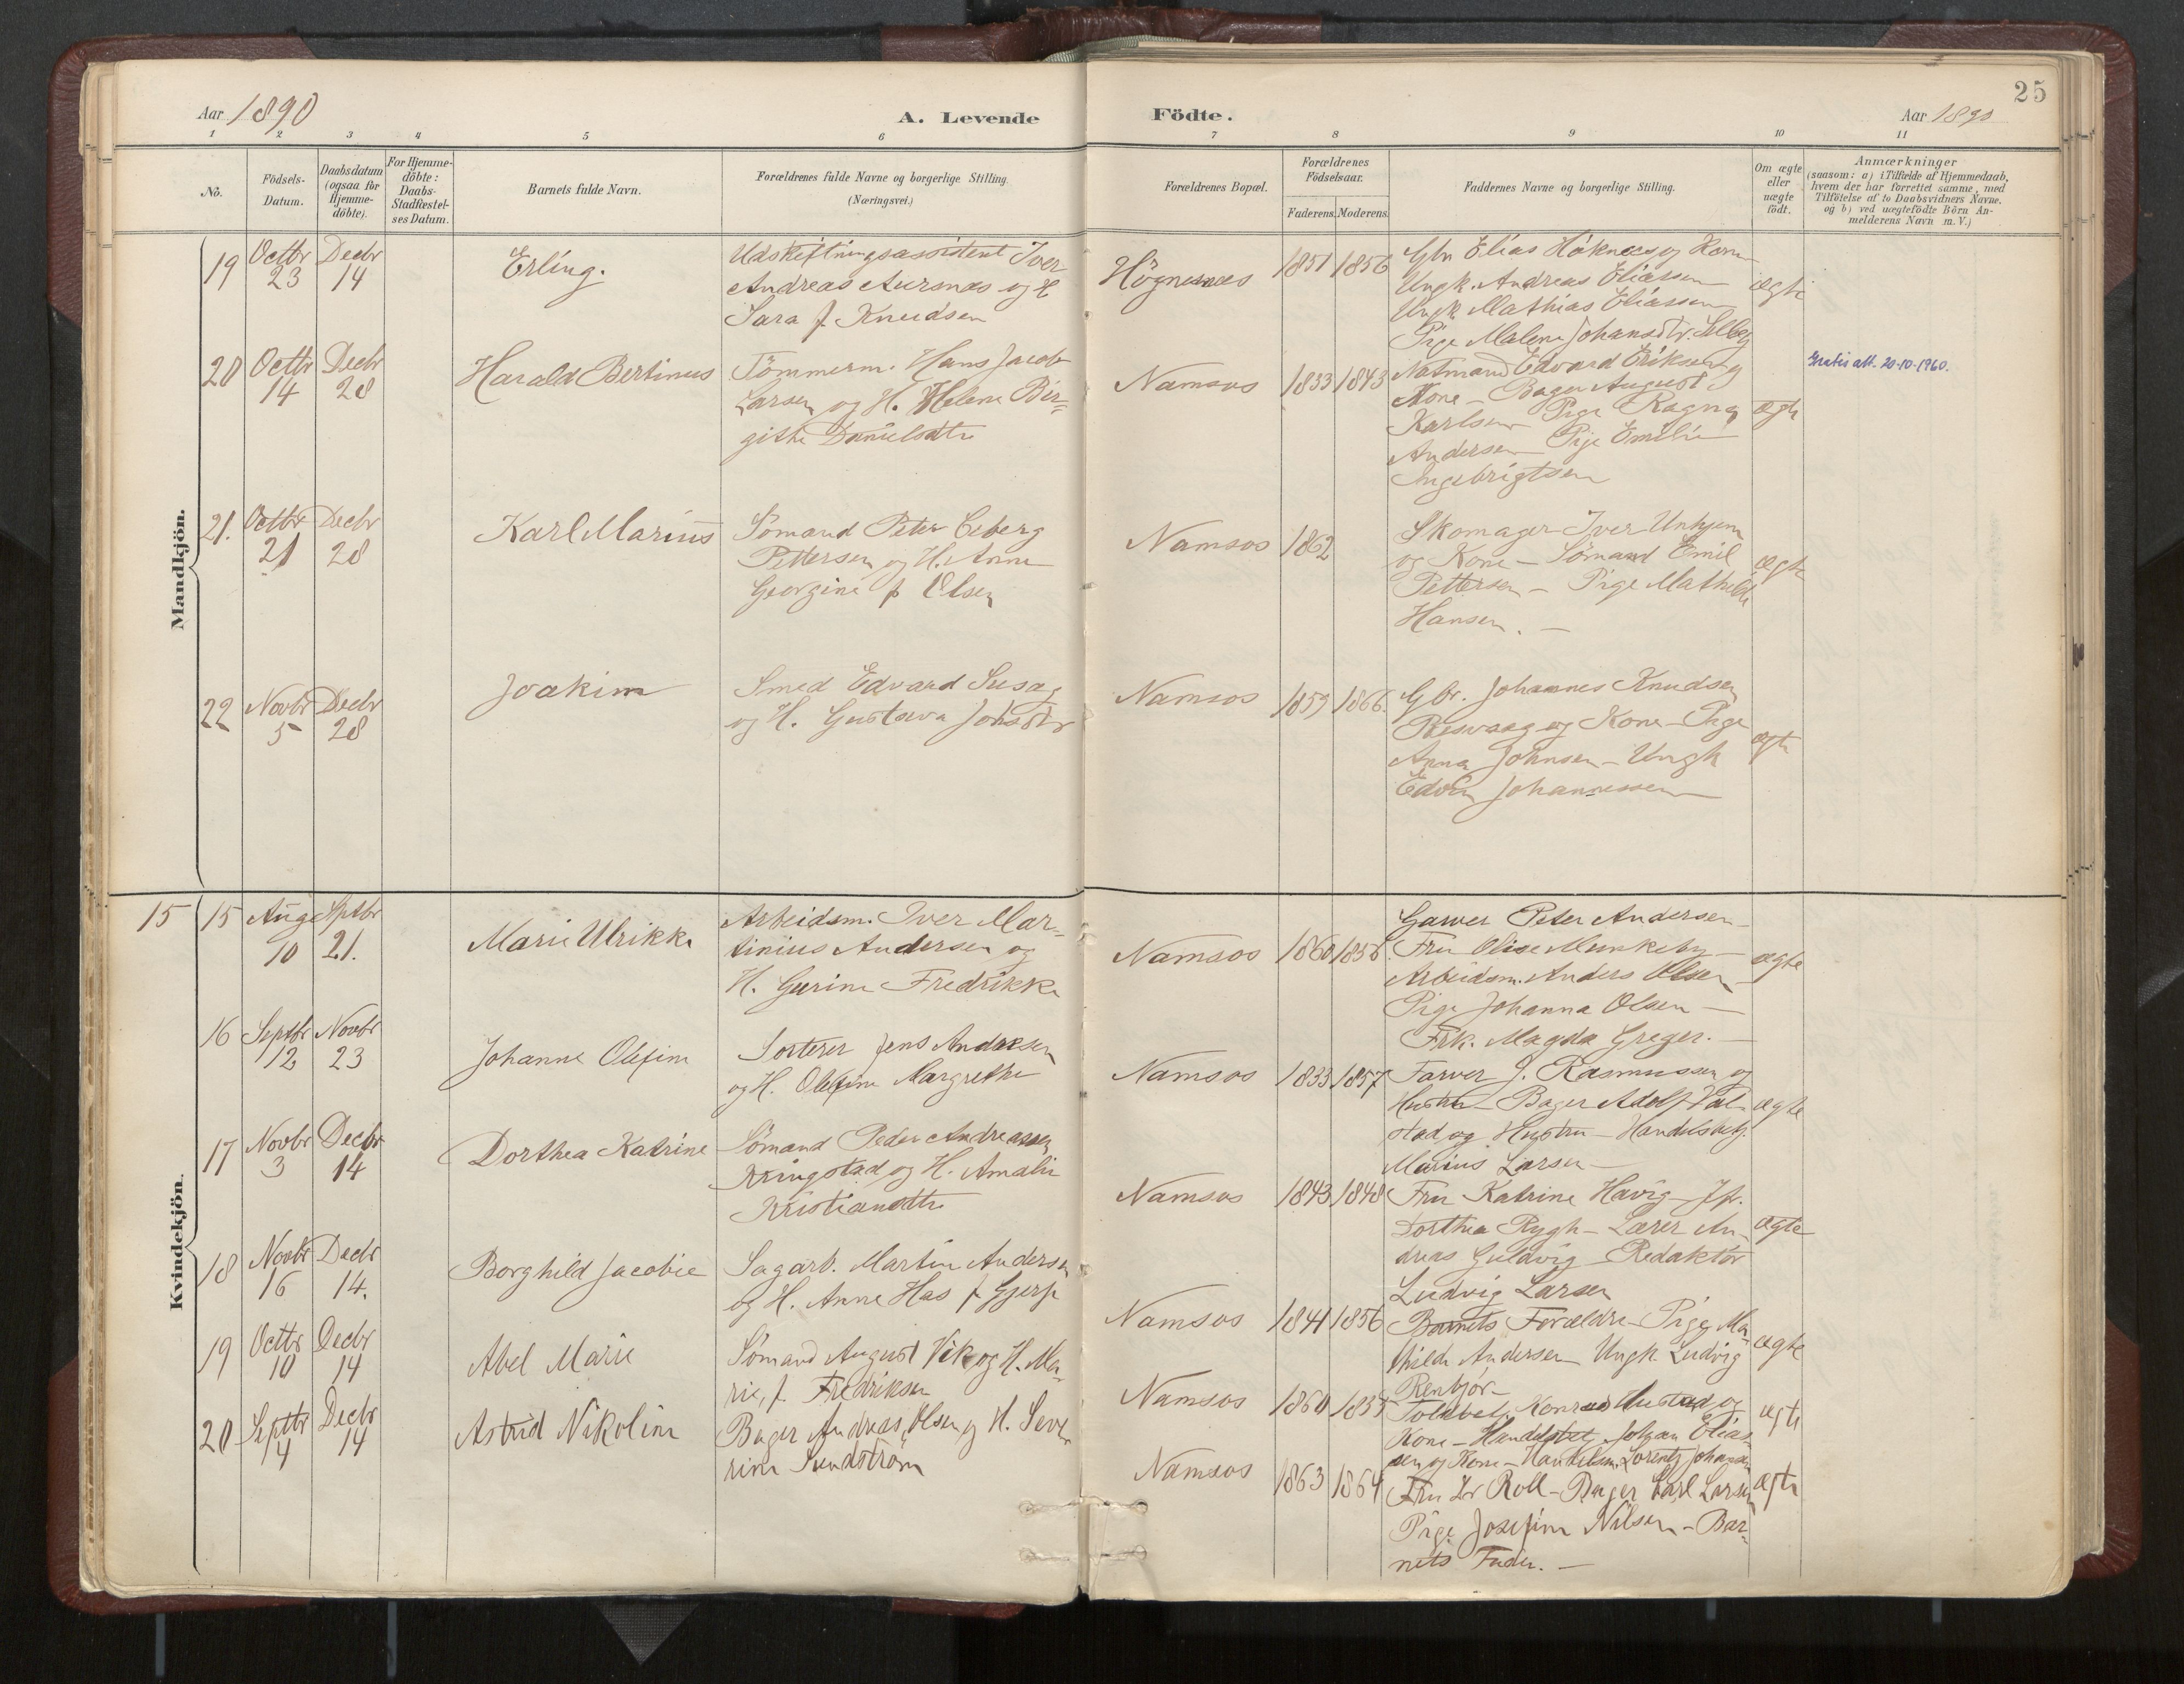 25
Aar 1890
A. Levende
Födte.
Aar 1890
1 2 3 4 5 6 7 8 9 10 11
No.
Födsels-Datum.
Daabsdatum (ogsaa for Hjemme-döbte).
For Hjemme-döbte: Daabs-Stadfæstel-ses Datum.
Barnets fulde Navn.
Forældrenes fulde Navne og borgerlige Stilling. (Næringsvei.)
Forældrenes Bopæl.
Forældrenes Födselsaar.
Faderens. Moderens.
Faddernes Navne og borgerlige Stilling.
Om ægte eller uægte födt.
Anmærkninger
(saasom: a) i Tilfælde af Hjemmedaab,
hvem der har forrettet samme, med
Tilföielse af to Daabsvidners Navne.
og b) ved uægtefödte Börn An-
melderens Navn m.V.)
Mandkjön.
19 Octbr 23 Decbr 14
Erling.
Udskiftningsassistent Iver
Andreas Aursnes og H
Sara f. Knudsen
Högnesnæs
1851 1856
Gbr Elias Høknes og Kone
Ungk. Andreas Eliassen
Ungk. Mathias Eliassen
Pige Malene Johansdtr.
ægte
20 Octbr 14 Decbr 28
Harald Bertinus
Tömmerm. Hans Jacob
Larsen og H. Helene Bir-
gitte Danielsdtr
Namsos
1833 1843
Natmand Edvard Eriksen og
Kone - Bager August
Karlsen Pige Ragna
Andersen Pige Emilie
Ingebrigtsen
ægte
Gratis att. 20-10-1960.
21. Octbr 21 Decbr 28
Karl Marius
Sömand Peter Ceberg
Pettersen og H. Anne
Georgine f Olsen
Namsos
1862
Skomager Iver Unhjem
og Kone - Sömand Emil
Pettersen - Pige Mathilde
Hansen. -
ægte
22 Novbr 5 Decbr 28
Joakim
Smed Edvard Susag
og H. Gustava Johsdtr
Namsos
1859 1866.
Gbr. Johannes Knudsen
og Kone - Pige
Anna Johnsen - Ungk
Edvin Johannessen
ægte
Kvindekjön.
15 15 Aug 10 Septbr 21.
Marie Ulrikke
Arbeidsm. Iver Mar-
tinius Andersen og
H. Gurine Fredrikke
Namsos
1860 1858.
Garver Peter Andersen -
Fru Olise Munkeby -
Arbeidsm. Anders Olsen
Pige Johanna Olsen -
Frk. Magda Greger. -
ægte
16 Septbr 12 Novbr 23
Johanne Olefine
Sorterer Jens Andersen
og H. Olefine Margrethe
Namsos
1833 1857
Farver J. Rasmussen og
Hustru - Bager Adolf Val-
stad og Hustru - Handelsbetj.
Marius Larsen -
ægte
17 Novbr 3 Decbr 14
Dorthea Katrine
Sömand Peder Andreassen
Kringstad og H. Amalie
Kristiansdtr
Namsos
1843 1848
Fru Katrine Havig - Jfr.
Dorthea Rygh - Lærer An-
dreas Guldvig - Redaktör
Ludvig Larsen
ægte
18 Novbr 16 Decbr 14.
Borghild Jacobie
Sagarb. Martin Andersen
og H. Anne Has f Gjerp
Namsos
1841 1856
Barnets Forældre - Pige Ma-
thilde Andersen Ungk. Ludvig
Renbjør -
ægte
19 Octbr 10 Decbr 14
Abel Marie
Sömand August Vik og H. Ma-
rie, f. Fredriksen
Namsos
1860
Toldbetj. Konrad Hustad og
Kone - Handelsbetj. Johan Elias-
sen og Kone - Handelsm. Lorentz Johansen
ægte
20 Septbr 14 Decbr 14
Astrid Nikoline
Bager Andreas Olsen og H. Seve-
rine Sundström
Namsos
1863 1864
Fru Dr Roll - Bager Carl Larsen
Pige Josefine Nilsen - Bar-
nets Fader. -
ægte